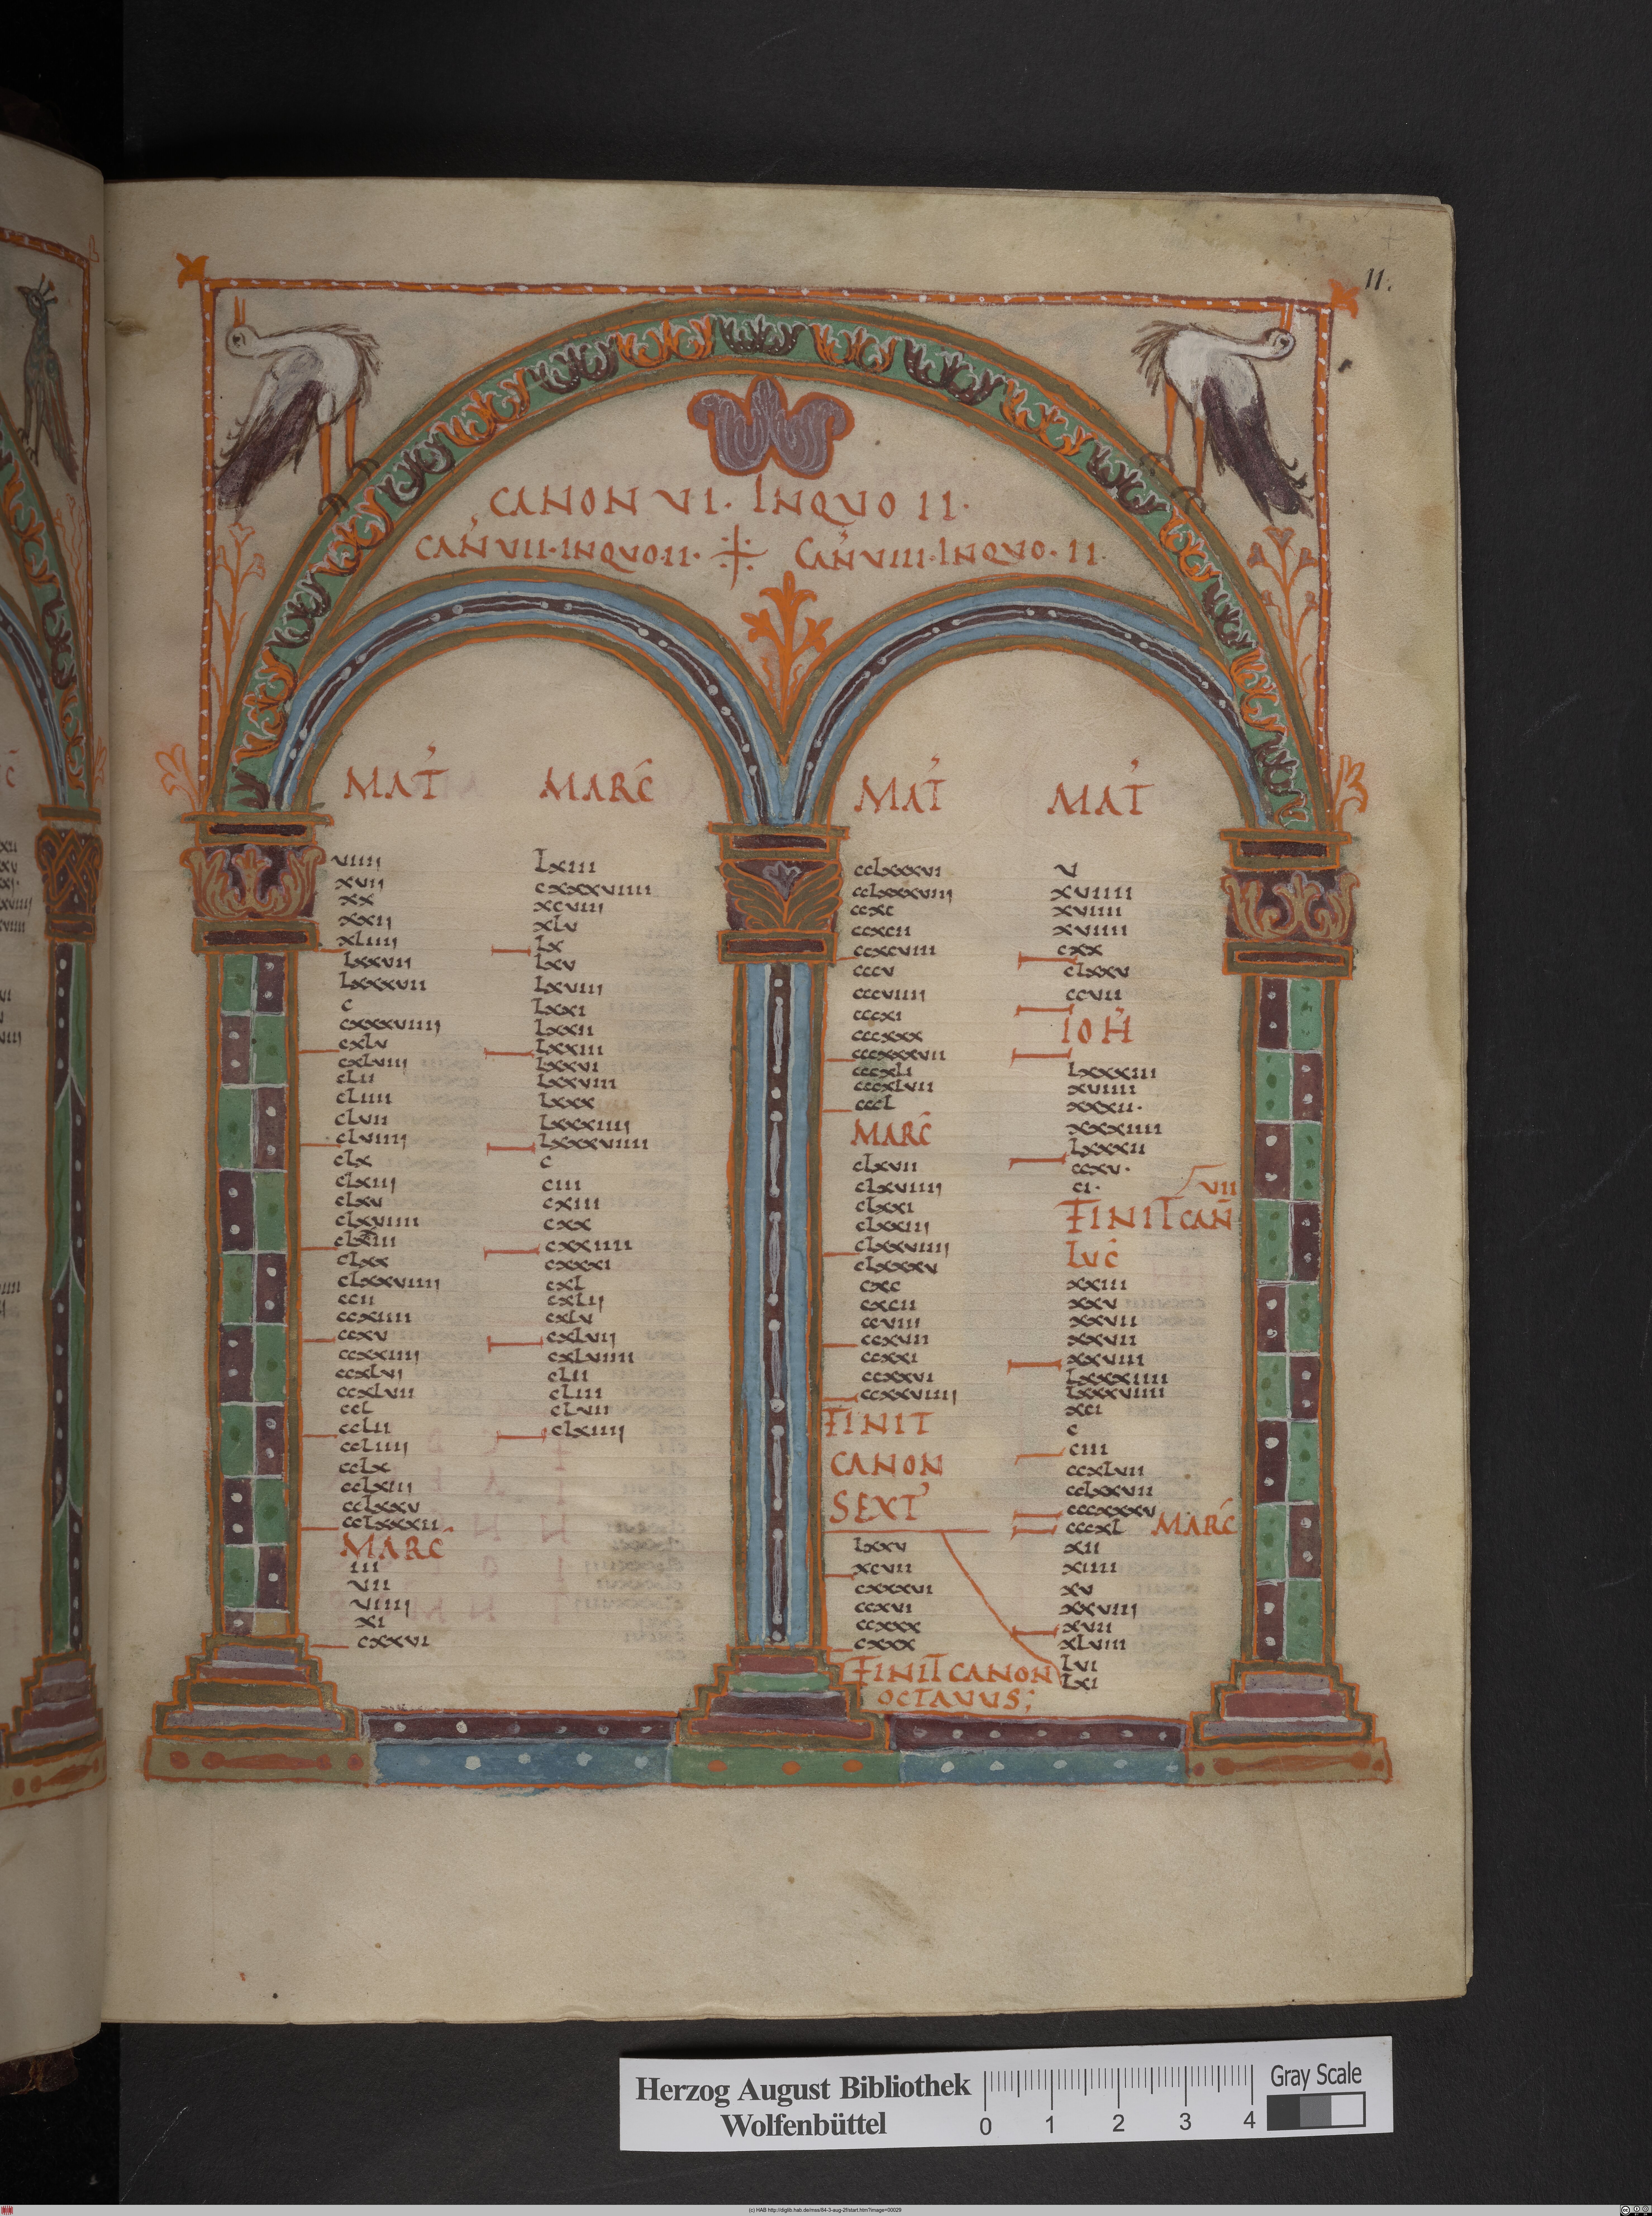 11.
CANON VI. INQVO II.
CAN VII. INQVO. II. CAN VIII. INQVO. II.
MAT
viiii
xvii
xx
xxii
xliiii
lxxvii
lxxxvii
c
cxxxviiii
cxlv
cxlviii
clii
cliiii
clvii
clviiii
clx
clxiii
clxv
clxviiii
clxx
clxxviiii
ccii
ccxiiii
ccxv
ccxxiiii
ccxlvi
ccxlvii
ccl
cclii
ccliiii
cclx
cclxiii
cclxxv
cclxxxii
MARC
iii
vii
viiii
xi
cxxvi
MARC
lxiii
cxxxviiii
xcviii
xlv
lx
lxv
lxviii
lxxi
lxxii
lxxiii
lxxvi
lxxviii
lxxx
lxxxiiii
lxxxviiii
c
ciii
cxiii
cxx
cxxiiii
cxxxi
cxl
cxlii
cxlv
cxlvii
cxlviiii
clii
cliii
clvii
clxiiii
MAT
cclxxxvi
cclxxxviiii
ccxc
ccxcii
ccxcviiii
cccv
cccviiii
cccxi
cccxxx
cccxxxvii
cccxli
cccxlvii
cccl
MARC
clxvii
clxviiii
clxxi
clxxiii
clxxviiii
clxxxv
cxc
cxcii
ccviii
ccxvii
ccxxi
ccxxvi
ccxxviiii
FINIT
CANON
SEXT
lxxv
xcvii
cxxxvi
ccxvi
ccxxx
cxxx
FINIT CANON
OCTAVUS;
MAT
v
xviiii
xviiii
xviiii
cxx
clxxv
ccvii
IOH
lxxxiii
xviiii
xxxii.
xxxiiii
lxxxii
ccxv.
ci.
VII
FINIT CAN
LVC
xxiii
xxv
xxvii
xxvii
xxviii
lxxxiiii
lxxxviiii
xci
c
ciii
ccxlvii
cclxxvii
cccxxxv
cccxl MARC
xii
xiiii
xv
xxviii
xvii
xlviii
lvi
lxi
Herzog August Bibliothek
Wolfenbüttel
0 1 2 3 4
Gray Scale
(c) HAB http://diglib.hab.de/mss/84-3-aug-2f/start.htm?image=00029